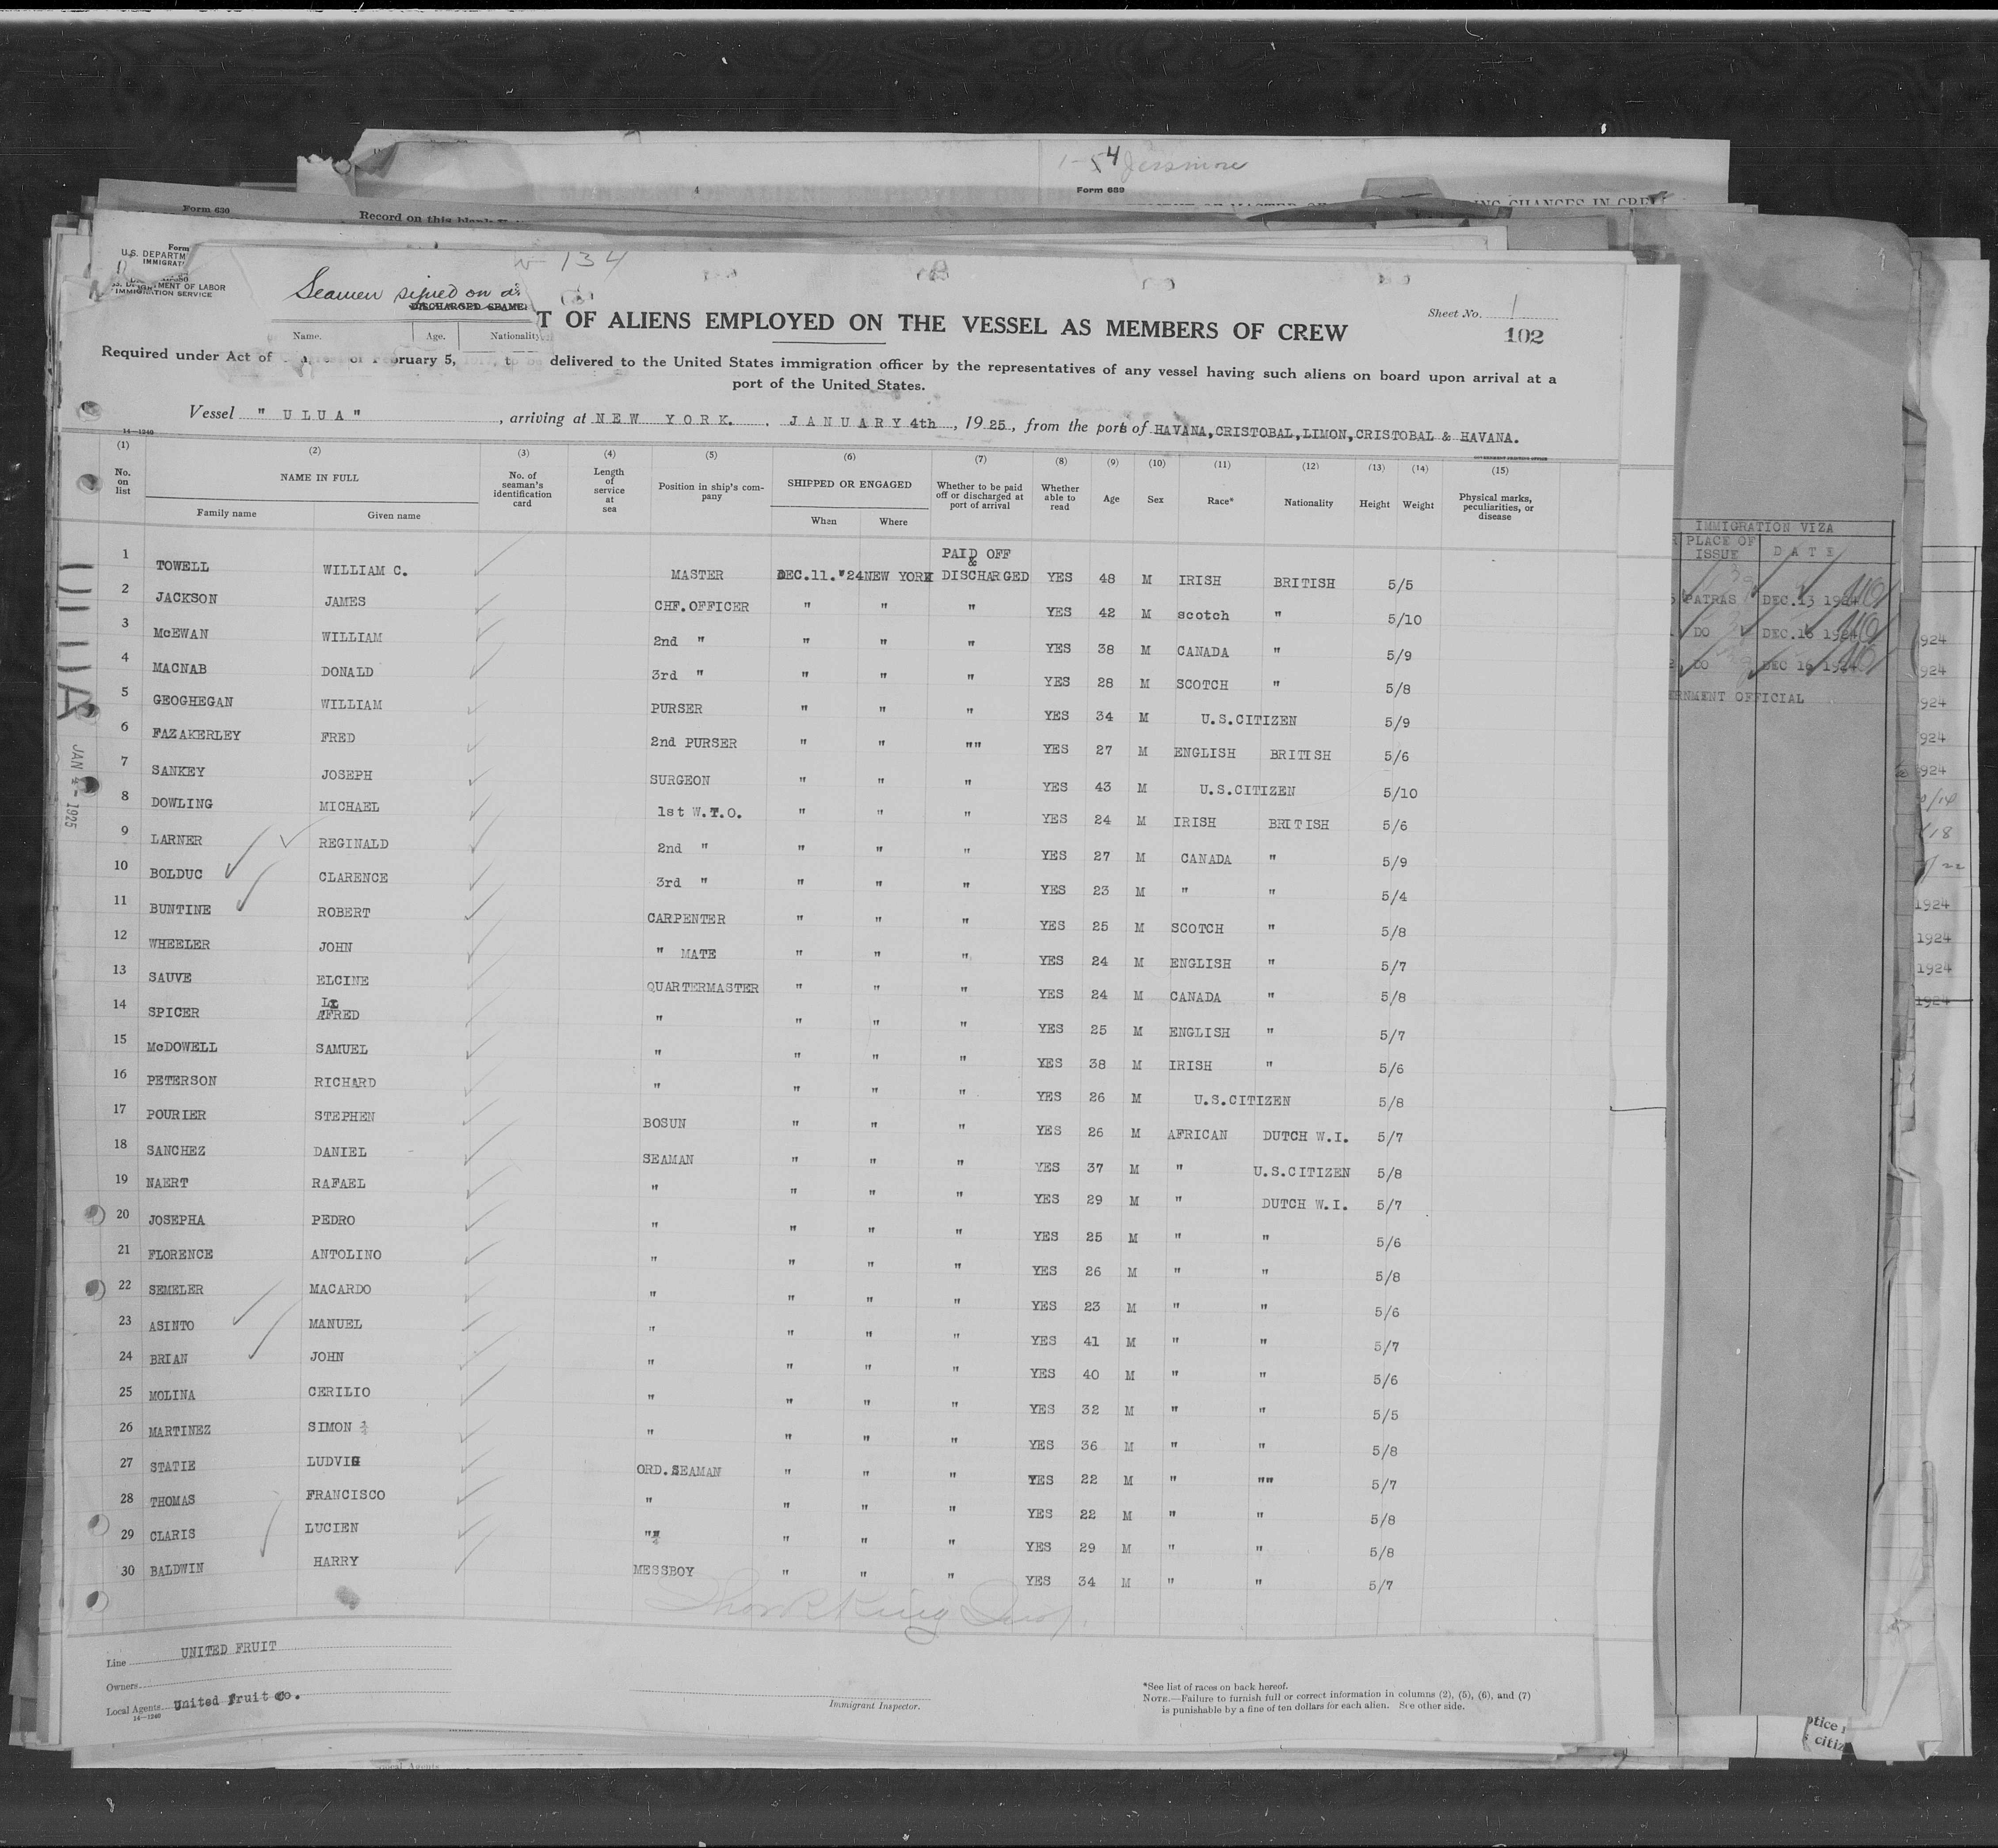 1-54 Jessmore
4
Form 689
Form 630
Record on this blank
ING CHANGES IN CREW
Form
U.S. DEPARTM
IMMIGRAT
MENT OF LABOR
IMMIGRATION SERVICE
134
Seamen signed on
DISCHARGED SEAME
Name. Age. Nationality
T OF ALIENS EMPLOYED ON THE VESSEL AS MEMBERS OF CREW
Sheet No. 1
102
Required under Act of February 5, to be delivered to the United States immigration officer by the representatives of any vessel having such aliens on board upon arrival at a
port of the United States.
Vessel "ULUA", arriving at NEW YORK. , JANUARY 4th, 1925, from the ports of HAVANA,CRISTOBAL,LIMON,CRISTOBAL & HAVANA.
14—1240
GOVERNMENT PRINTING OFFICE
(1) (2) (3) (4) (5) (6) (7) (8) (9) (10) (11) (12) (13) (14) (15)
No. on list
NAME IN FULL
Family name
Given name
No. of seaman's identification card
Length of service at sea
Position in ship's company
SHIPPED OR ENGAGED
When
Where
Whether to be paid off or discharged at port of arrival
Whether able to read
Age
Sex
Race*
Nationality
Height
Weight
Physical marks, peculiarities, or disease
1 TOWELL WILLIAM C. MASTER DEC.11.'24 NEW YORK PAID OFF & DISCHARGED YES 48 M IRISH BRITISH 5/5
2 JACKSON JAMES CHF.OFFICER " " " YES 42 M scotch " 5/10
3 McEWAN WILLIAM 2nd " " " " YES 38 M CANADA " 5/9
4 MACNAB DONALD 3rd " " " " YES 28 M SCOTCH " 5/8
5 GEOGHEGAN WILLIAM PURSER " " " YES 34 M U.S.CITIZEN 5/9
6 FAZAKERLEY FRED 2nd PURSER " " "" YES 27 M ENGLISH BRITISH 5/6
7 SANKEY JOSEPH SURGEON " " " YES 43 M U.S.CITIZEN 5/10
8 DOWLING MICHAEL 1st W.T.O. " " " YES 24 M IRISH BRITISH 5/6
9 LARNER REGINALD 2nd " " " " YES 27 M CANADA " 5/9
10 BOLDUC CLARENCE 3rd " " " " YES 23 M " " 5/4
11 BUNTINE ROBERT CARPENTER " " " YES 25 M SCOTCH " 5/8
12 WHEELER JOHN " MATE " " " YES 24 M ENGLISH " 5/7
13 SAUVE ELCINE QUARTERMASTER " " " YES 24 M CANADA " 5/8
14 SPICER ALFRED " " " " YES 25 M ENGLISH " 5/7
15 McDOWELL SAMUEL " " " " YES 38 M IRISH " 5/6
16 PETERSON RICHARD " " " " YES 26 M U.S.CITIZEN 5/8
17 POURIER STEPHEN BOSUN " " " YES 26 M AFRICAN DUTCH W.I. 5/7
18 SANCHEZ DANIEL SEAMAN " " " YES 37 M " U.S.CITIZEN 5/8
19 NAERT RAFAEL " " " " YES 29 M " DUTCH W.I. 5/7
20 JOSEPHA PEDRO " " " " YES 25 M " " 5/6
21 FLORENCE ANTOLINO " " " " YES 26 M " " 5/8
22 SEMELER MACARDO " " " " YES 23 M " " 5/6
23 ASINTO MANUEL " " " " YES 41 M " " 5/7
24 BRIAN JOHN " " " " YES 40 M " " 5/6
25 MOLINA CERILIO " " " " YES 32 M " " 5/5
26 MARTINEZ SIMON " " " " YES 36 M " " 5/8
27 STATIE LUDVIG ORD.SEAMAN " " " YES 22 M " "" 5/7
28 THOMAS FRANCISCO " " " " YES 22 M " " 5/8
29 CLARIS LUCIEN "" " " " YES 29 M " " 5/8
30 BALDWIN HARRY MESSBOY " " " YES 34 M " " 5/7
Thos R King Insp.
Line UNITED FRUIT
Owners
Local Agents United Fruit Co.
14—1240
Immigrant Inspector.
*See list of races on back hereof.
NOTE.—Failure to furnish full or correct information in columns (2), (5), (6), and (7)
is punishable by a fine of ten dollars for each alien. See other side.
ULUA
JAN 4 - 1925
IMMIGRATION VIZA
PLACE OF ISSUE
DATE
PATRAS DEC.13 1924
DO DEC.16 1924
DO DEC 16 1924
ERNMENT OFFICIAL
924
924
924
924
924
/18
1924
1924
1924
1924
otice
citiz